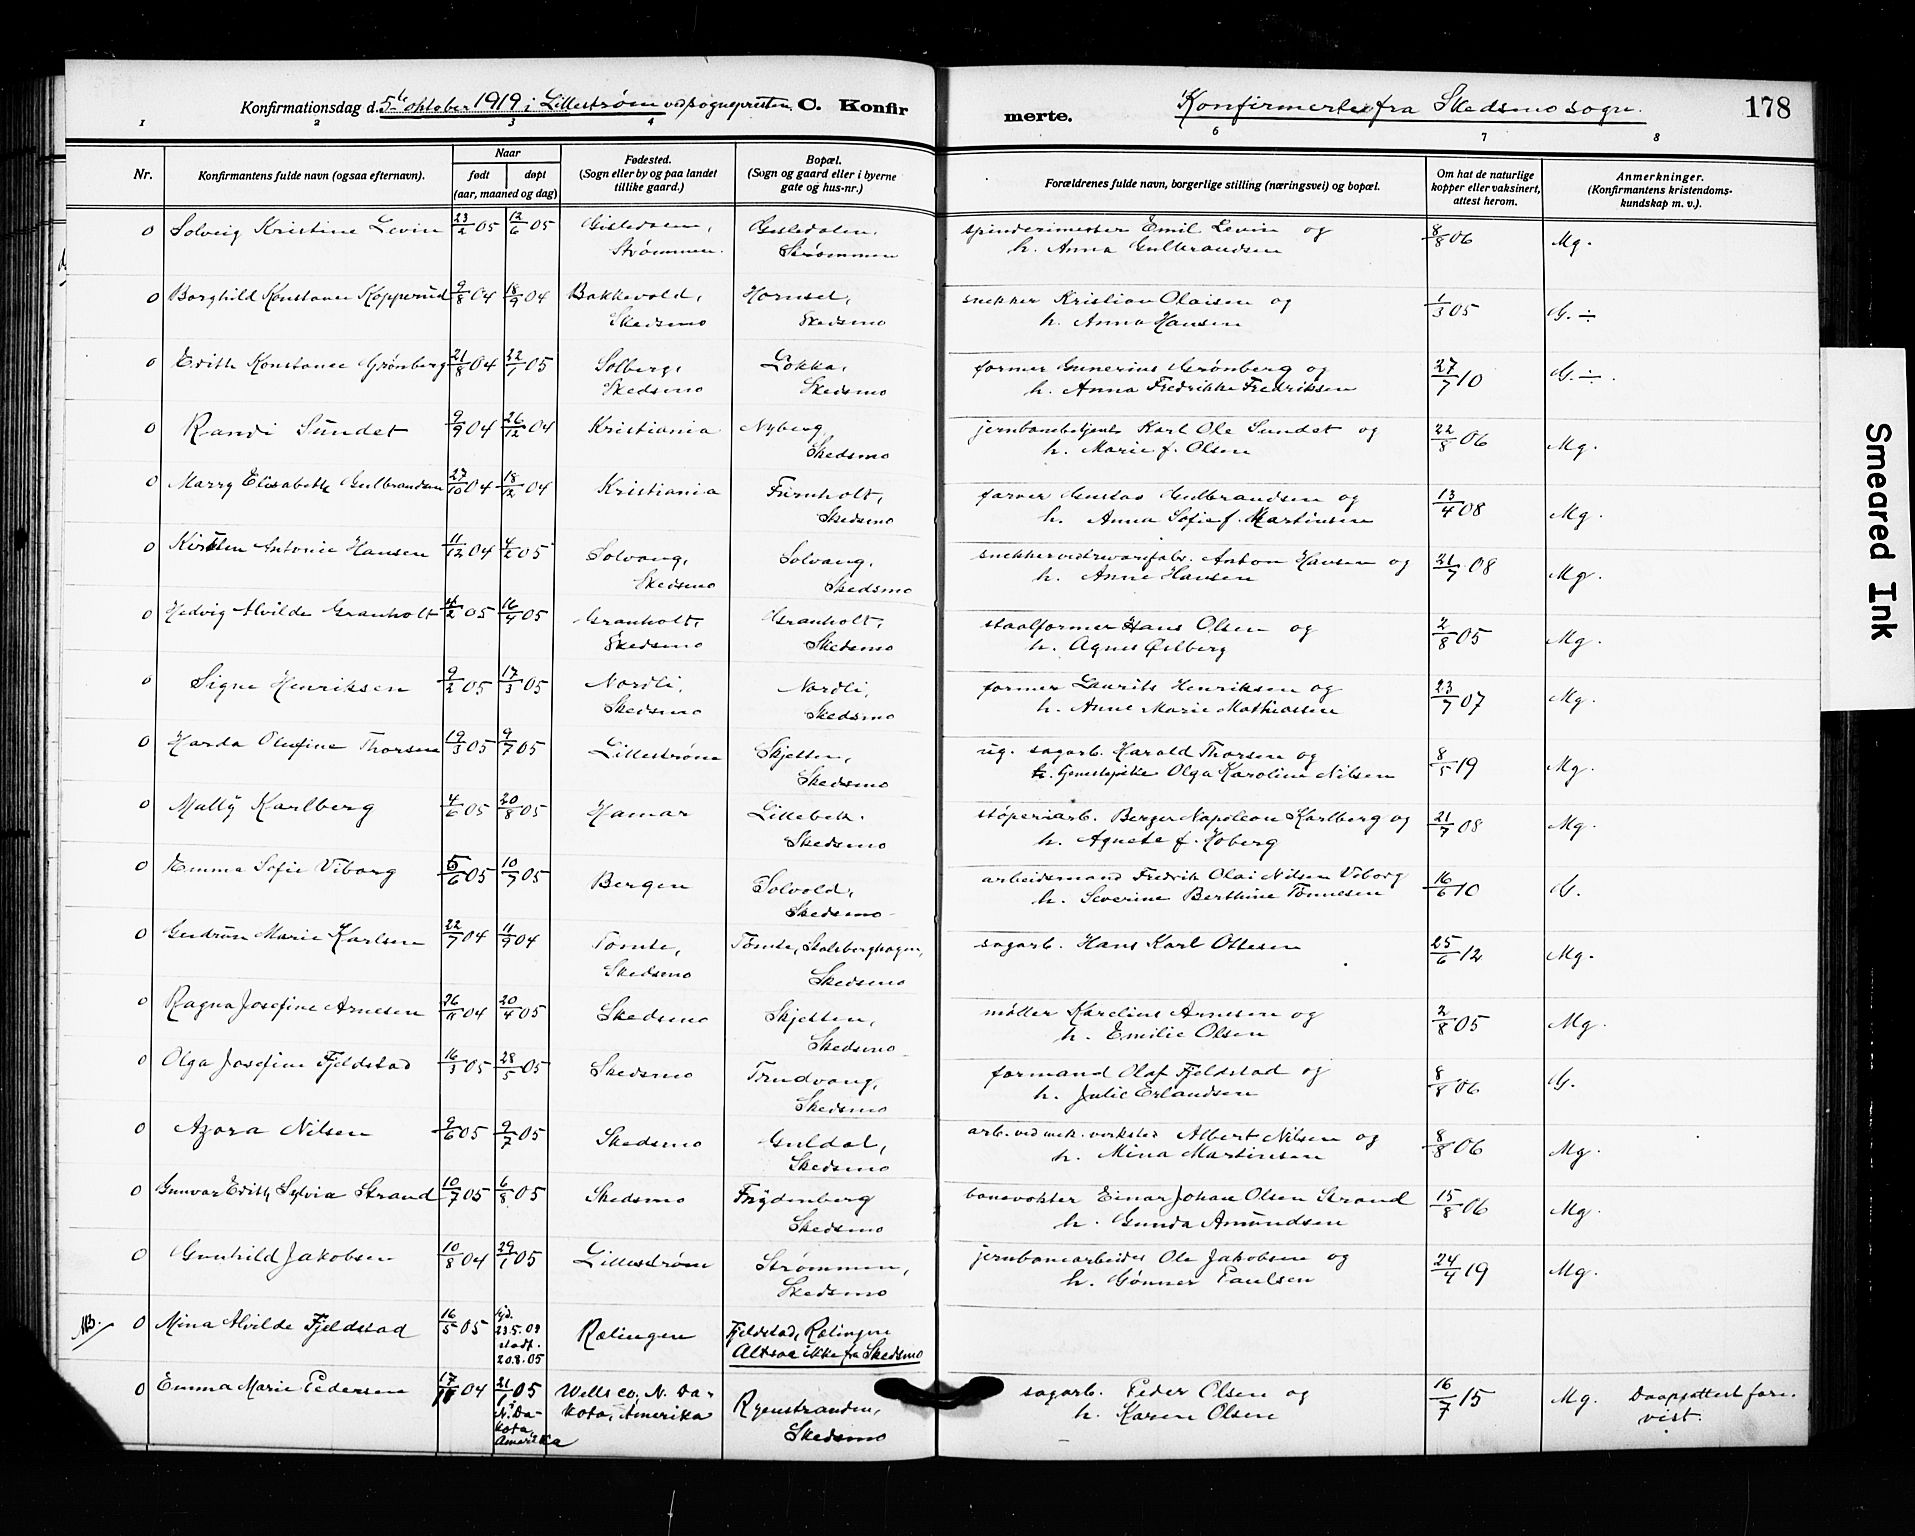 Konfirmationsdag d. 5te oktober 1919 i Lillestrøm ved sognepresten. C. Konfir
merte. Konfirmerte fra Skedsmo sogn. 178
1 2 3 4 6 7 8
Nr. Konfirmantens fulde navn (ogsaa efternavn). Naar født døpt (aar, maaned og dag) Fødested. (Sogn eller by og paa landet tillike gaard.) Bopæl. (Sogn og gaard eller i byerne gate og hus-nr.) Forældrenes fulde navn, borgerlige stilling (næringsvei) og bopæl. Om hat de naturlige kopper eller vaksinert, attest herom. Anmerkninger. (Konfirmantens kristendoms-kundskap m. v.).
0 Solveig Kristine Levin 23/2 05 12/6 05 Gisledalen, Gisledalen. spinderimester Emil Levin og 8/8 06 Mg.
Strømmen. Strømmen h. Anna Gulbrandsen
0 Borghild Konstance Kopperud 9/8 04 18/9 04 Bakkevold, Hornset, snekker Kristian Olaisen og 1/3 05 G. ÷
Skedsmo Skedsmo h. Anna Hansen
0 Edith Konstance Grønberg 21/8 04 22/1 05 Solberg, Løkka, former Gunerius Grønberg og 27/7 10 G. ÷.
Skedsmo Skedsmo h. Anna Fredrikke Fredriksen
0 Randi Sundet 9/9 04 26/12 04 Kristiania Nyberg jernbanebetjent Karl Ole Sundet og 22/8 06 Mg.
Skedsmo h. Marie f. Olsen
0 Marry Elisabeth Gulbrandsen 27/10 04 18/12 04 Kristiania Furuholt, farver Gustav Gulbrandsen og 13/4 08 Mg.
Skedsmo h. Anna Sofie f. Martinsen
0 Kirsten Antonie Hansen 11/12 04 4/2 05 Solvang, Solvang, snekker ved trævarefabr. Anton Hansen og 21/7 08 Mg.
Skedsmo Skedsmo h. Anne Hansen
0 Hedvig Alvilde Granholt 4/2 05 16/4 05 Granholt, Granholt, staalformer Hans Olsen og 2/8 05 Mg.
Skedsmo Skedsmo h. Agnes Østberg
0 Signe Henriksen 9/2 05 17/3 05 Nordli, Nordli, former Laurits Henriksen og 23/7 07 Mg.
Skedsmo Skedsmo h. Anne Marie Mathiassen
0 Harda Olufine Thorsen 19/3 05 9/7 05 Lillestrøm Skjetten, ug. sagarb. Harald Thorsen og 8/5 19 Mg.
Skedsmo Olga Karoline Nilsen
0 Mally Karlberg 4/6 05 20/8 05 Hamar Lillebek. støperiarb. Berger Napoleon Karlberg og 21/7 08 Mg.
Skedsmo h. Agnete f. Hoberg
0 Emma Sofie Viborg 5/6 05 10/7 05 Bergen Solvold, arbeidsmand Fredrik Olai Nilsen Viborg 16/6 10 G.
Skedsmo h. Severine Berthine Tønnesen
0 Gudrun Marie Karlsen 22/7 04 11/9 04 Tomte, Tomte, Stalsberghagen, sagarb. Hans Karl Ottesen 25/6 12 Mg.
Skedsmo Skedsmo
0 Ragna Josefine Arnesen 26/11 04 20/4 05 Skedsmo Skjetten, møller Karelius Arnesen og 2/8 05 Mg.
Skedsmo h. Emilie Olsen
0 Olga Josefine Fjeldstad 16/3 05 28/5 05 Skedsmo Trudvang, formand Olaf Fjeldstad og 8/8 06 G.
Skedsmo h. Julie Erlandsen
0 Azora Nilsen 9/6 05 9/7 05 Skedsmo Guldal, arb. ved mek. verksted Albert Nilsen og 8/8 06 Mg.
Skedsmo h. Mina Martinsen
0 Gunvor Edith Sylvia Strand 10/7 05 6/8 05 Skedsmo Frydenberg banevokter Einar Johan Olsen Strand 15/8 06 Mg.
Skedsmo h. Gunda Amundsen
0 Gunhild Jakobsen 10/8 04 29/1 05 Lillestrøm Strømmen, jernbanearbeider Ole Jakobsen og 24/4 19 Mg.
Skedsmo h. Gønner Paulsen
NB. 0 Mina Alvilde Fjeldstad 16/5 05 hjd. 23.5.05 stadf. 20.8.05 Rælingen Fjeldstad, Rælingen
Altsaa ikke fra Skedsmo
0 Emma Marie Pedersen 17/11 04 21/1 05 Wells co. N. Da- Ryenstranden, sagarb. Peder Olsen og 16/7 15 Mg. Daapsattest fore-
N. Da-kota, Amerika kota, Amerika Skedsmo h. Karen Olsen vist.
Smeared Ink